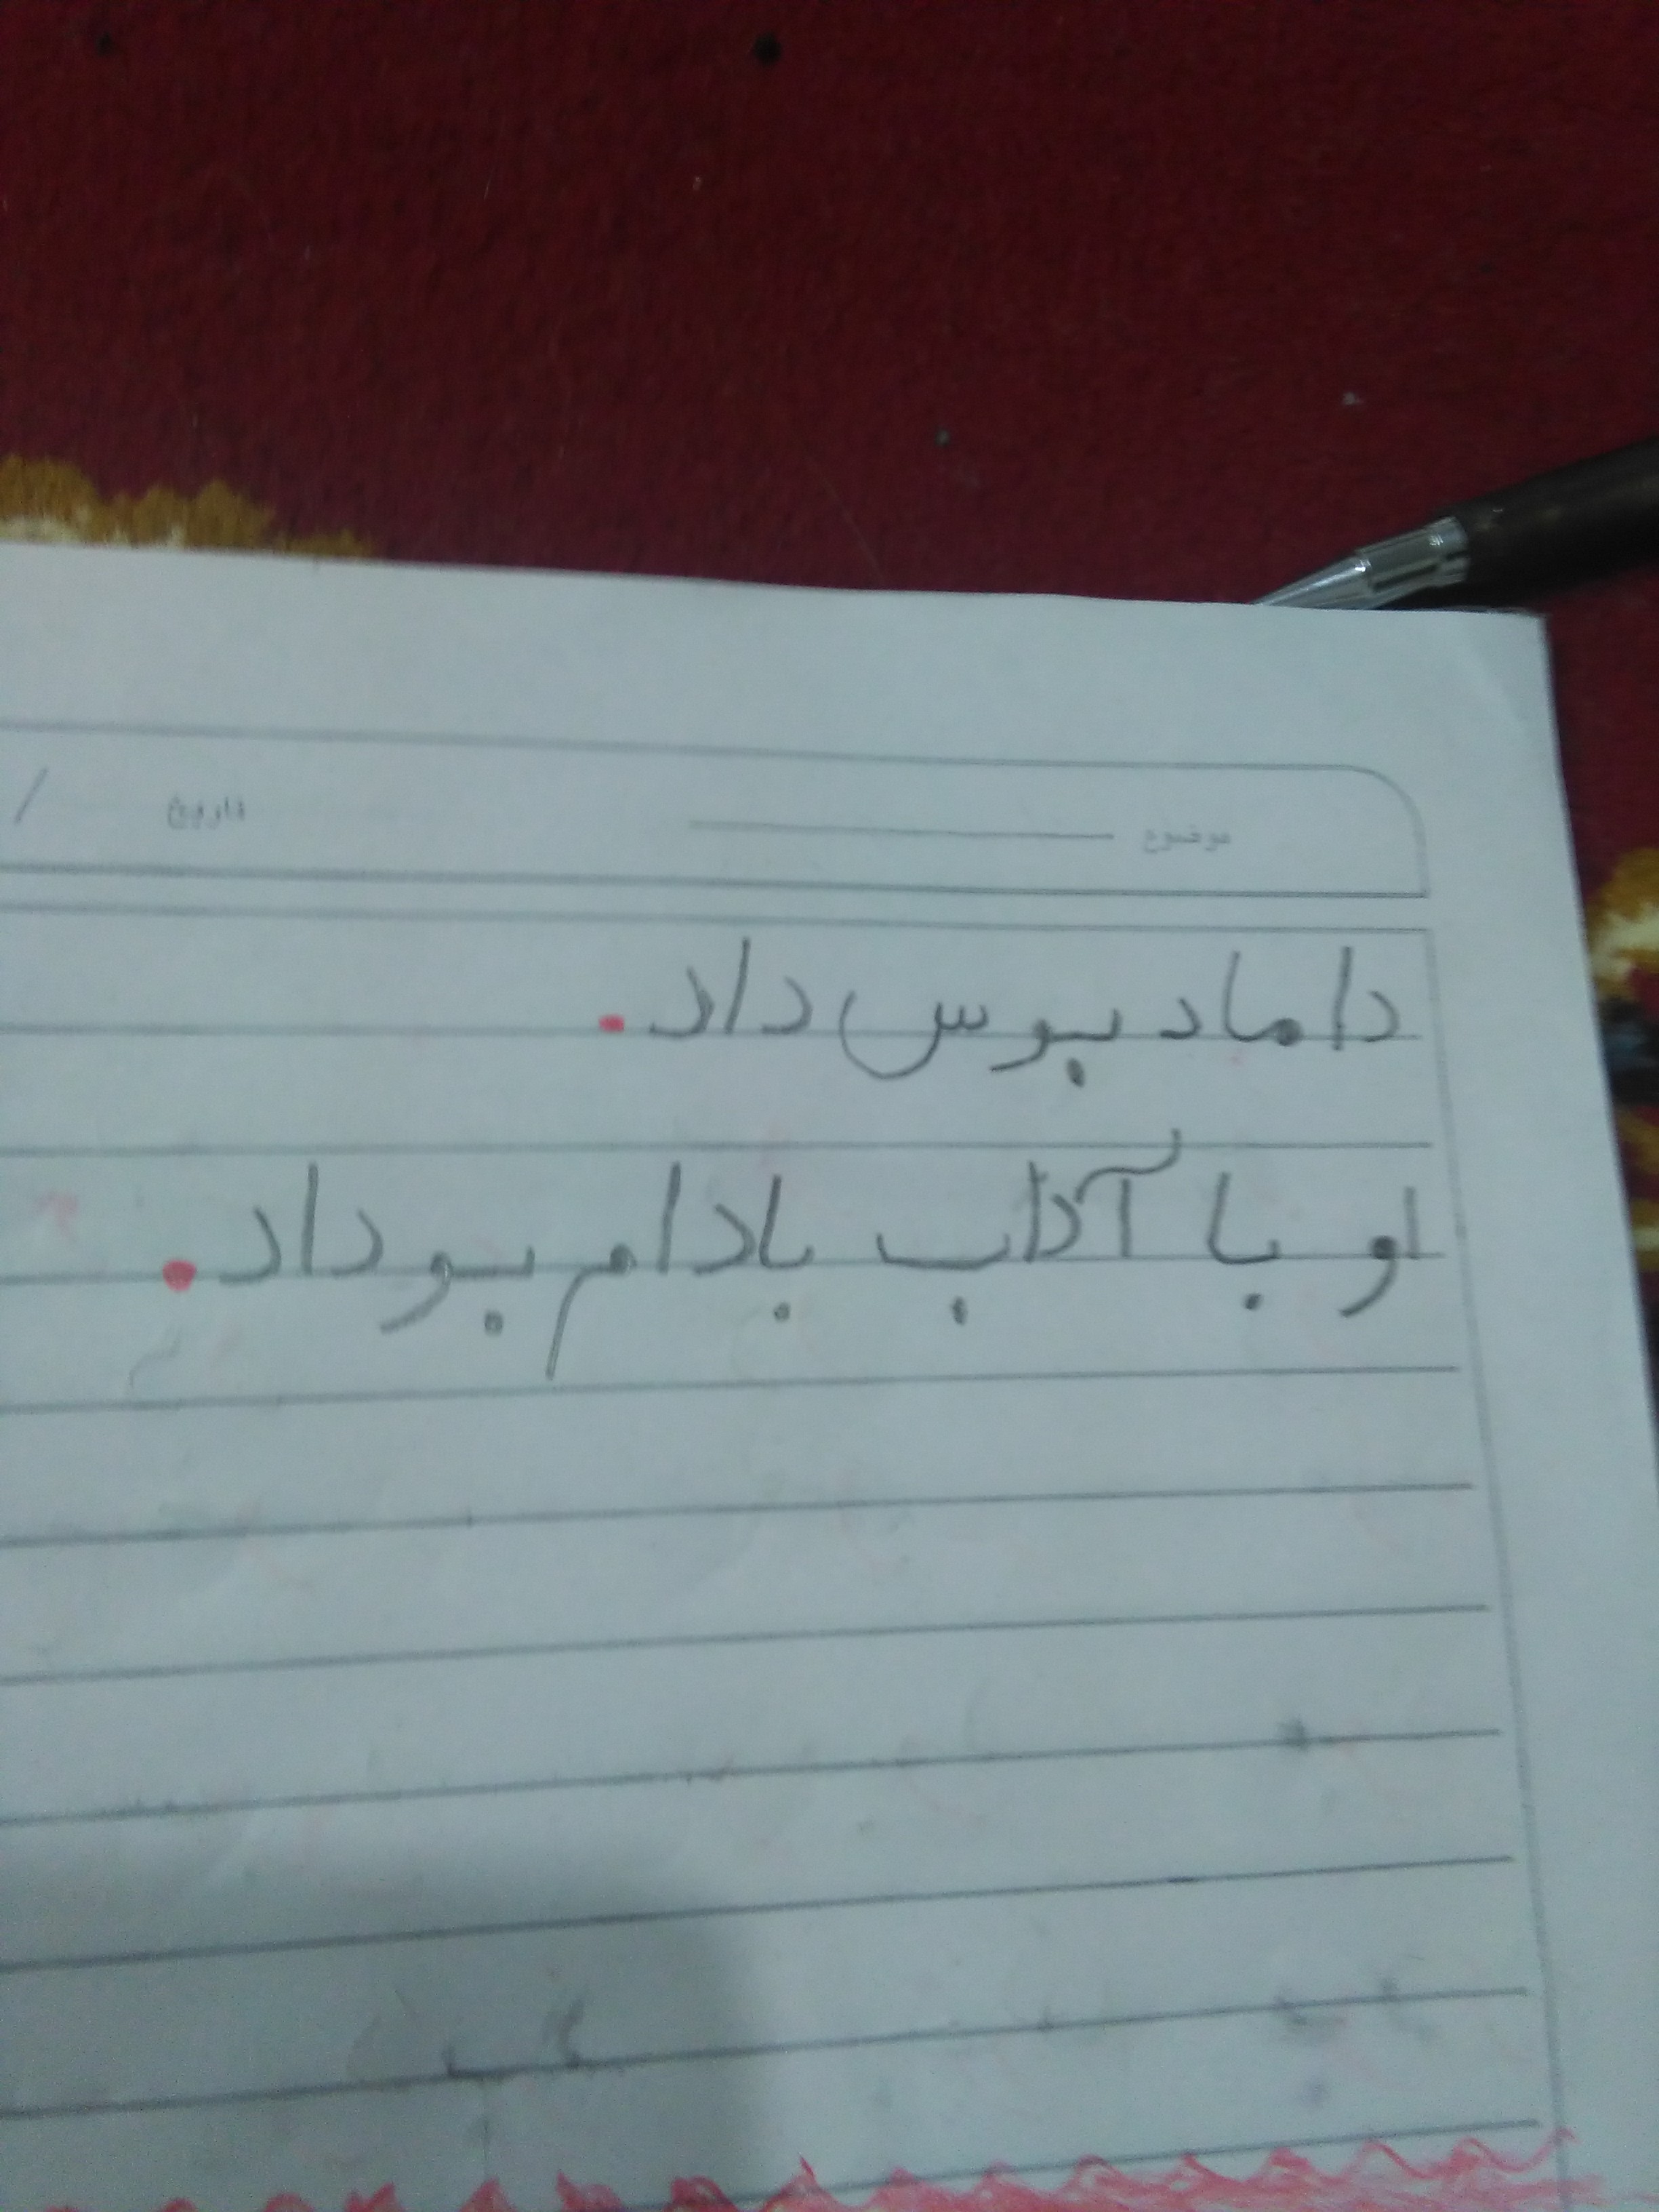 موضوع تاریخ /
داماد بوس داد.
او با آداب بادام بو داد.